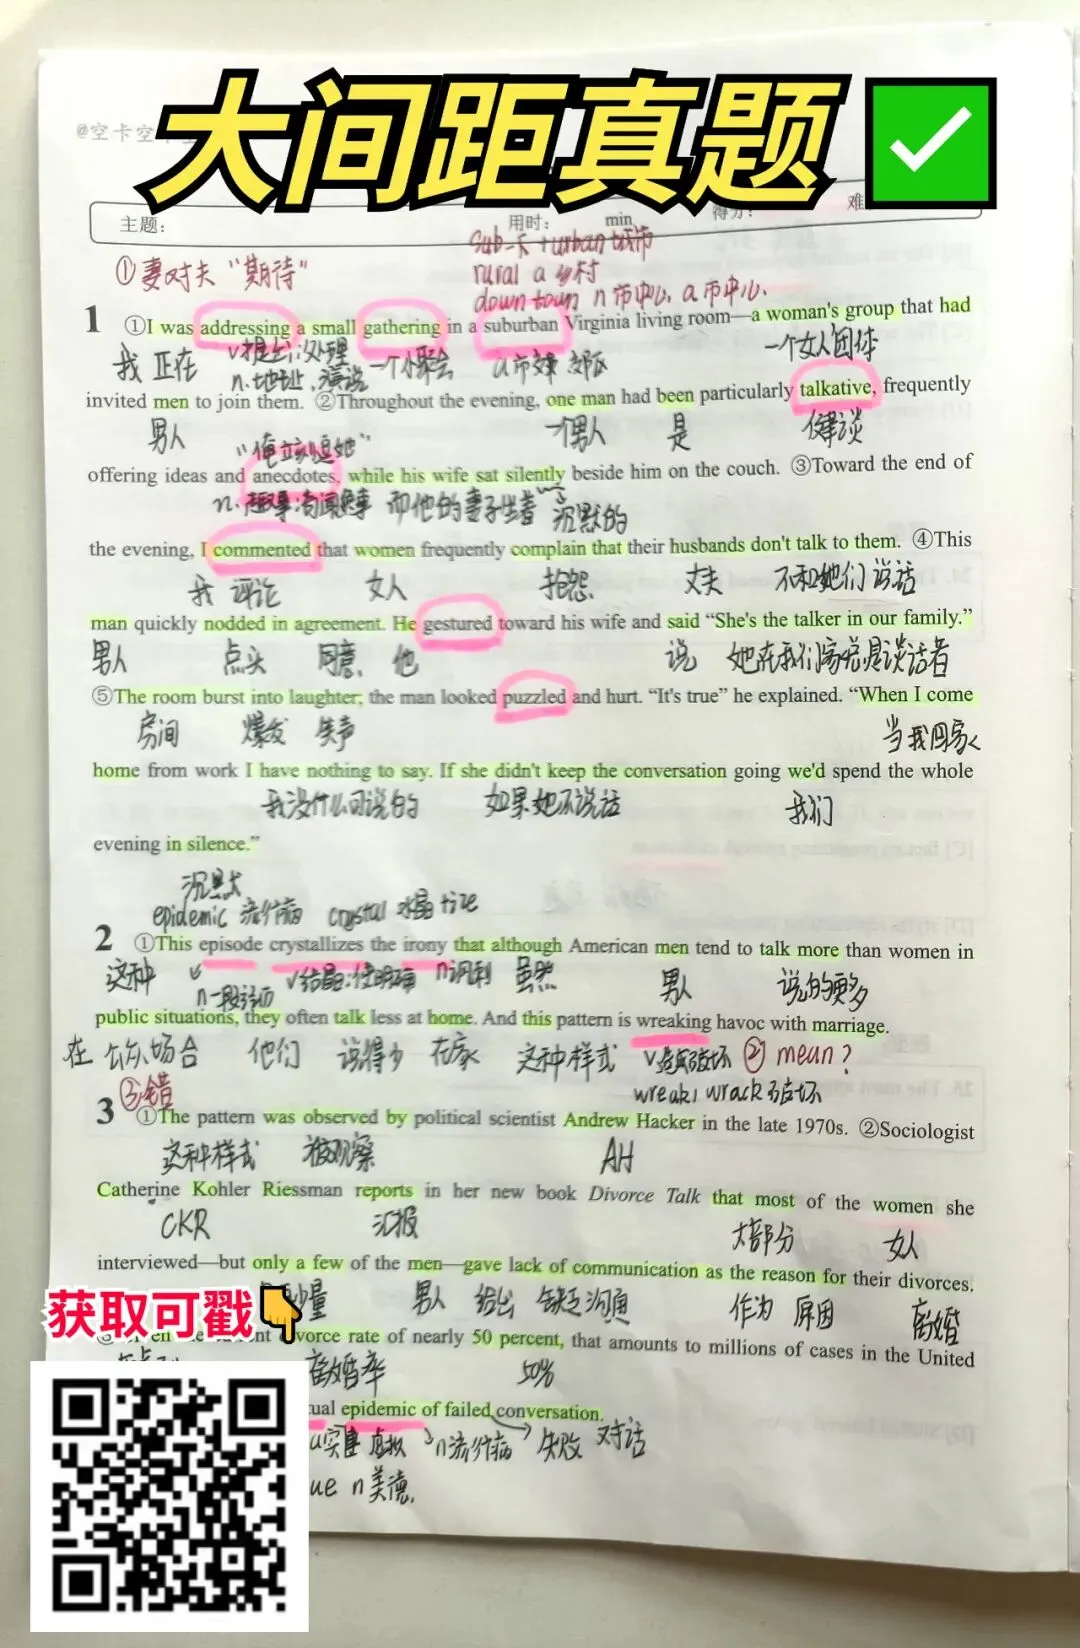 大间距真题
@空卡空
主题：
用时： min
得分：
难
sub-下 + urban 城市
rural a 乡村
down town n 市中心, a 市中心.
①妻对夫“期待”
1 ①I was addressing a small gathering in a suburban Virginia living room—a woman's group that had
我 正在 v提出;处理 一个小聚会 a市郊 郊区 一个女人团体
n.地址,演说
invited men to join them. ②Throughout the evening, one man had been particularly talkative, frequently
男人 一个男人 是 健谈
offering ideas and anecdotes, while his wife sat silently beside him on the couch. ③Toward the end of
n.趣事;奇闻轶事 而他的妻子坐着 沉默的
the evening, I commented that women frequently complain that their husbands don't talk to them. ④This
我 评论 女人 抱怨 丈夫 不和她们说话
man quickly nodded in agreement. He gestured toward his wife and said “She's the talker in our family.”
男人 点头 同意 他 说 她在我们家总是谈话者
⑤The room burst into laughter; the man looked puzzled and hurt. “It's true” he explained. “When I come
房间 爆发 笑声 当我回家
home from work I have nothing to say. If she didn't keep the conversation going we'd spend the whole
我没什么可说的 如果她不说话 我们
evening in silence.”
沉默
epidemic 流行病 crystal 水晶 tize
2 ①This episode crystallizes the irony that although American men tend to talk more than women in
这种 n一段经历 v结晶;使明确 n讽刺 虽然 男人 说的更多
public situations, they often talk less at home. And this pattern is wreaking havoc with marriage.
在 公众场合 他们 说得少 在家 这种样式 v造成破坏 ② mean?
wreak; wrack 破坏
③错
3 ①The pattern was observed by political scientist Andrew Hacker in the late 1970s. ②Sociologist
这种样式 被观察 AH
Catherine Kohler Riessman reports in her new book Divorce Talk that most of the women she
CKR 汇报 大部分 女人
interviewed—but only a few of the men—gave lack of communication as the reason for their divorces.
少量 男人 给出 缺乏沟通 作为 原因 离婚
divorce rate of nearly 50 percent, that amounts to millions of cases in the United
离婚率 50%
tual epidemic of failed conversation.
n流行病 失败 对话
ue n美德.
获取可戳